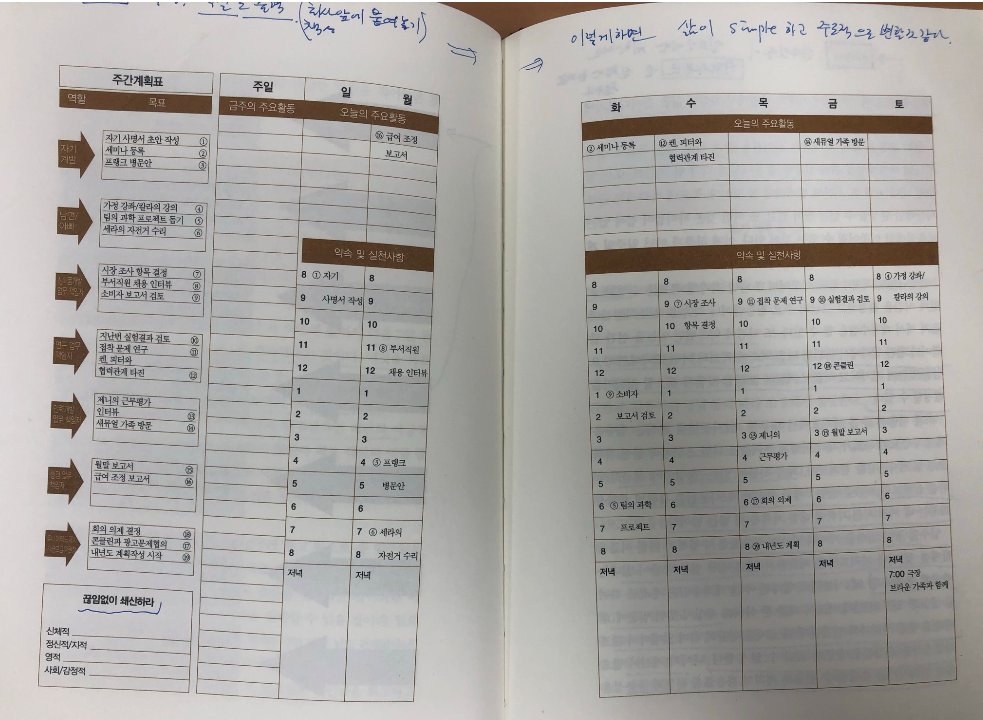 (회사앞에 붙여놓기)
책상
이렇게하면 삶이 simple 하고 주도적으로 변할것같다.
주간계획표
역할 목표
자기
계발
자기 사명서 초안 작성 ①
세미나 등록 ②
프랭크 병문안 ③
남편/
아빠
가정 강좌/칼라의 강의 ④
팀의 과학 프로젝트 돕기 ⑤
세라의 자전거 수리 ⑥
시장 조사 항목 결정 ⑦
부서직원 채용 인터뷰 ⑧
소비자 보고서 검토 ⑨
지난번 실험결과 검토 ⑩
접착 문제 연구 ⑪
켄, 피터와
협력관계 타진 ⑫
제니의 근무평가
인터뷰 ⑬
새뮤얼 가족 방문
월말 보고서 ⑮
급여 조정 보고서 ⑯
회의 의제 결정
콘클린과 광고문제협의
내년도 계획작성 시작
끊임없이 쇄신하라
신체적
정신적/지적
영적
사회/감정적
주일 일 월
금주의 주요활동 오늘의 주요활동
⑯ 급여 조정
보고서
약속 및 실천사항
8 ① 자기 8
9 사명서 작성 9
10 10
11 11 ⑧ 부서직원
12 12 채용 인터뷰
1 1
2 2
3 3
4 4 ③ 프랭크
5 5 병문안
6 6
7 7 ⑥ 세라의
8 8 자전거 수리
저녁 저녁
화 수 목 금 토
오늘의 주요활동
② 세미나 등록 ⑫ 켄, 피터와 ⑭ 새뮤얼 가족 방문
협력관계 타진
약속 및 실천사항
8 8 8 8 8 ④ 가정 강좌/
9 9 ⑦ 시장 조사 9 ⑪ 접착 문제 연구 9 ⑩ 실험결과 검토 9 칼라의 강의
10 10 항목 결정 10 10 10
11 11 11 11 11
12 12 12 12 ⑱ 콘클린 12
1 ⑨ 소비자 1 1 1 1
2 보고서 검토 2 2 2 2
3 3 3 ⑬ 제니의 3 ⑮ 월말 보고서 3
4 4 4 근무평가 4 4
5 5 5 5 5
6 ⑤ 팀의 과학 6 6 ⑰ 회의 의제 6 6
7 프로젝트 7 7 7 7
8 8 8 ⑲ 내년도 계획 8 8
저녁 저녁 저녁 저녁 저녁
7:00 극장
브라운 가족과 함께